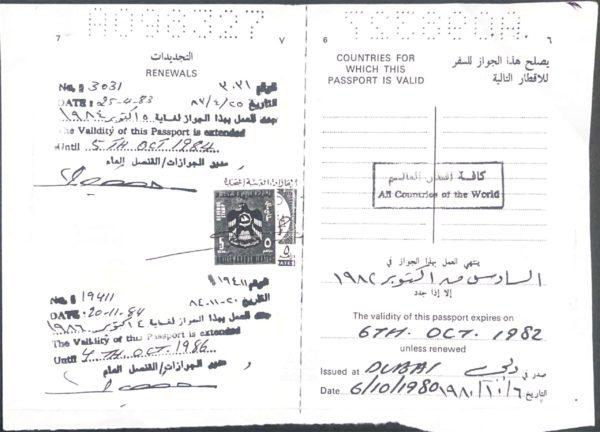 A098327
7
٧
التجديدات
RENEWALS
No. § 3031
الرقم ٣٠٣١
DATE : 25-4-83
التاريخ ٨٣/٤/٢٥
يمدد العمل بهذا الجواز لغاية ٥ اكتوبر ١٩٨٤
The Validity of this Passport is extended
Until 5TH OCT 1984
مدير الجوازات/القنصل العام
5
٥
No. § 19411
الرقم ١٩٤١١
DATE : 20-11-84
التاريخ ٢٠-١١-٨٤
يمدد العمل بهذا الجواز لغاية ٤ اكتوبر ١٩٨٦
The Validity of this Passport is extended
Until 4TH OCT 1986
مدير الجوازات/القنصل العام
6
٦
COUNTRIES FOR
WHICH THIS
PASSPORT IS VALID
يصلح هذا الجواز للسفر
للاقطار التالية
كافة اقطار العالم
All Countries of the World
ينتهي العمل بهذا الجواز في
السادس من اكتوبر ١٩٨٢
إلا إذا جدد
The validity of this passport expires on
6TH. OCT. 1982
unless renewed
Issued at DUBAI دبي صدر في
Date 6/10/1980 ١٩٨٠/١٠/٦ التاريخ